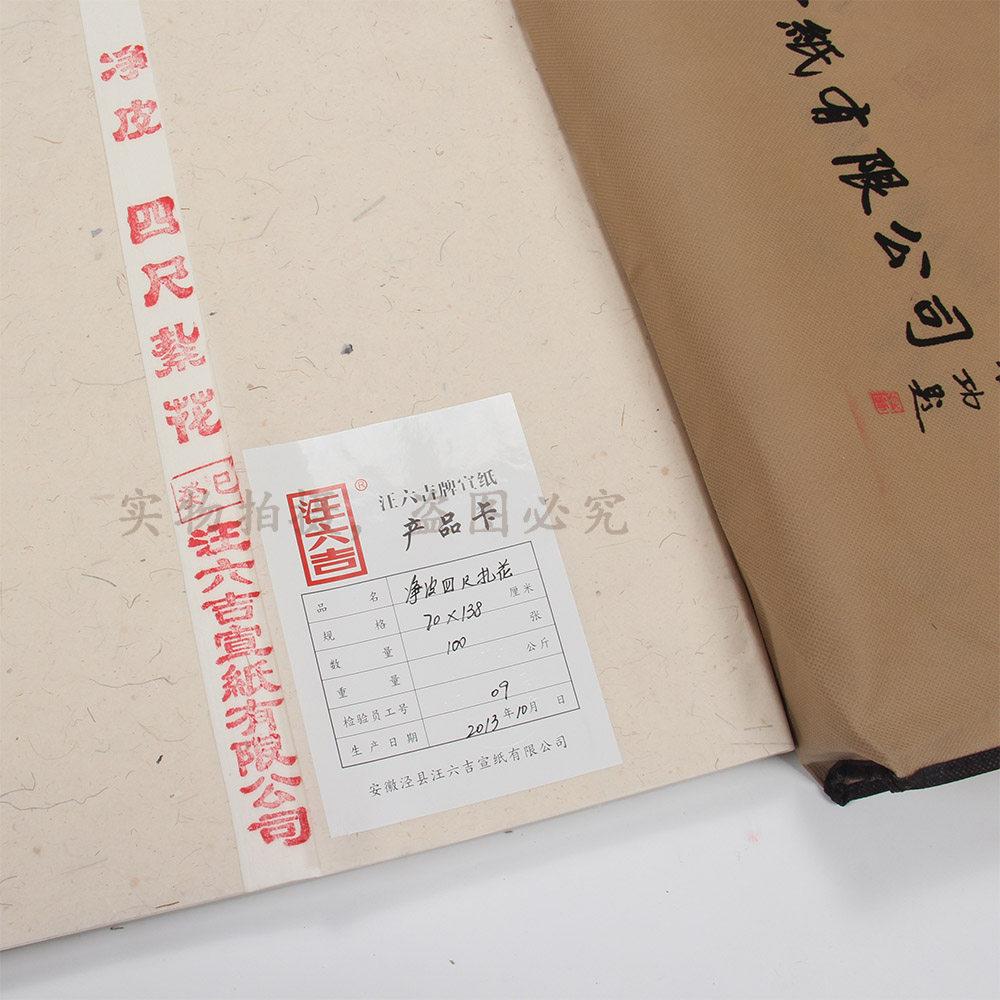 净皮 四尺紮花
汪六吉宣紙有限公司
紙有限公司
功題
实物拍摄，盗图必究
汪六吉
®
汪六吉牌宣纸
产品卡
品名 净皮四尺扎花
规格 70×138 厘米
数量 100 张
重量 公斤
检验员工号 09
生产日期 2013年10月 日
安徽泾县汪六吉宣纸有限公司